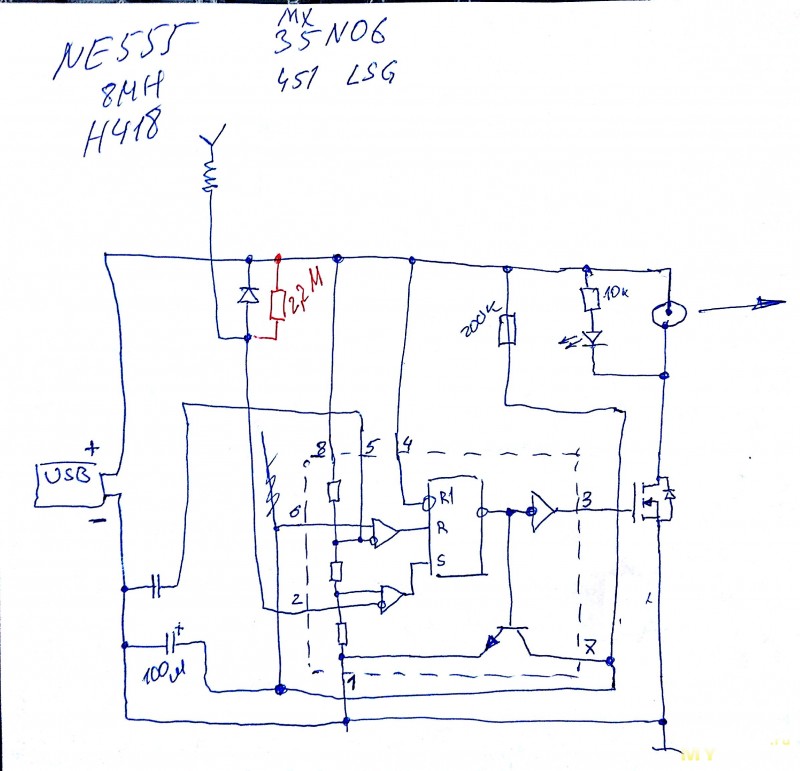 NE555
8MH
H418
MX
35N06
451 LSG
2,2 M
10K
200K
+
USB
-
8 5 4
6
R1
3
R
S
2
+
7
100M
1
MY
.ru